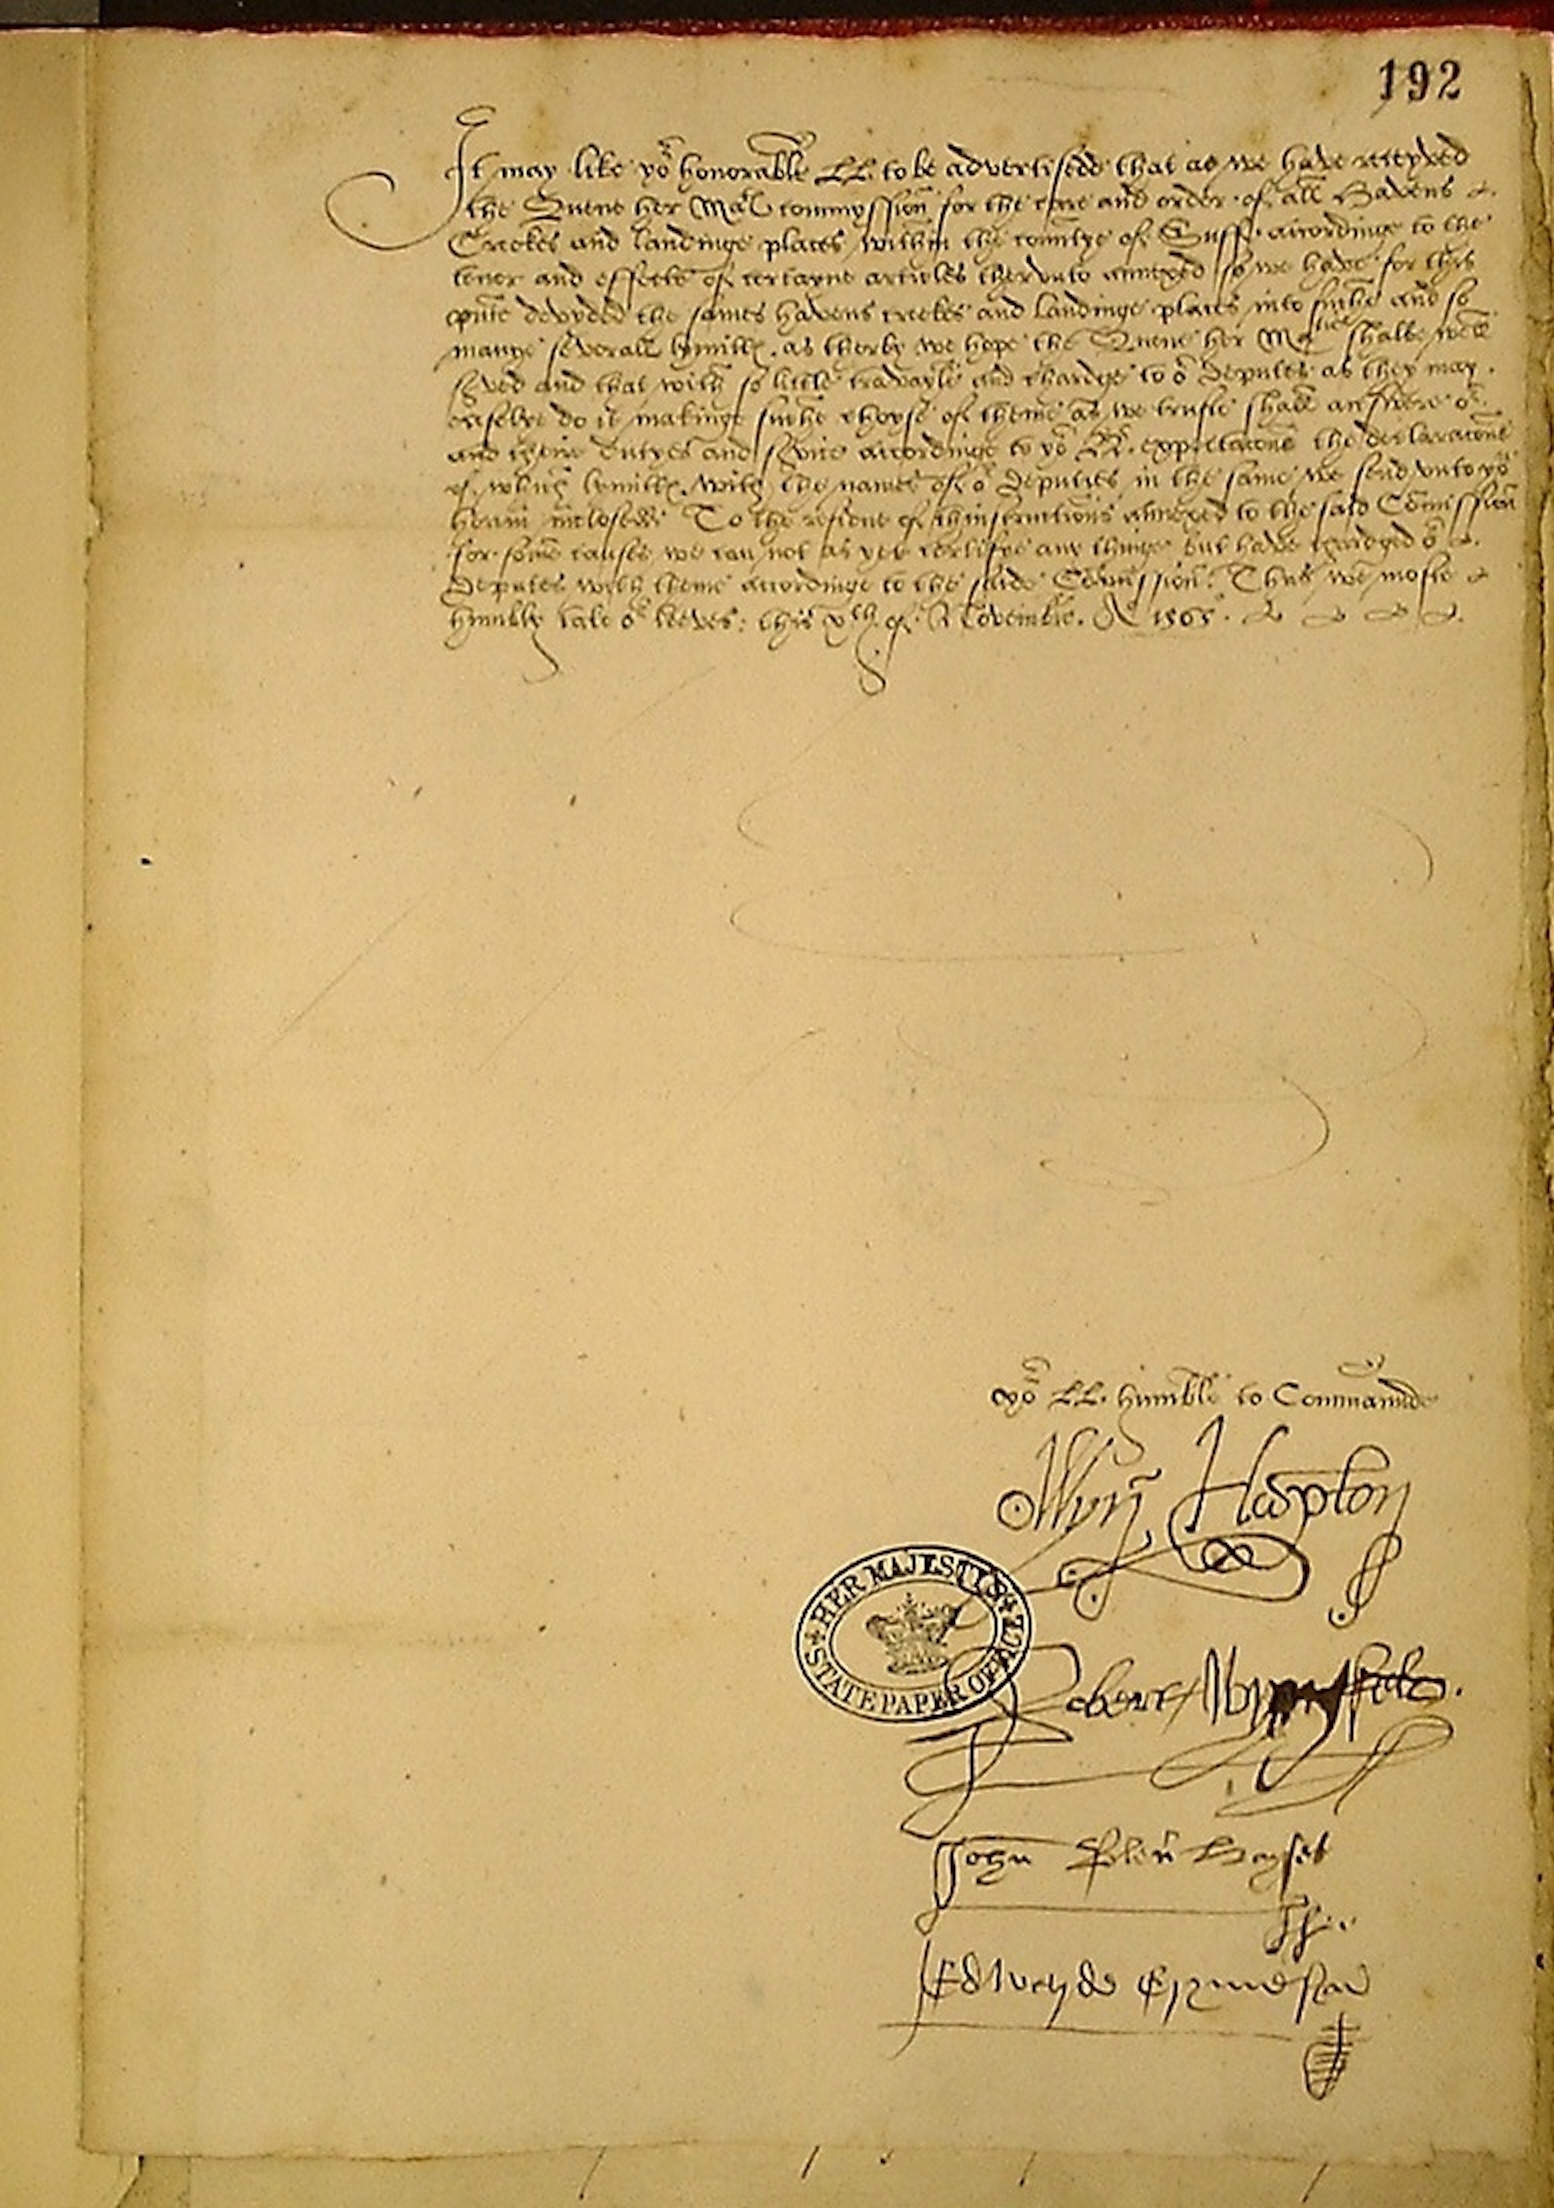 192
It may like yor honorable LL. to be advertisede that as we have receyved
the Quene her Mats commyssion for the care and order of all Havens &
Creekes and landinge places within the countye of Suff. accordinge to the
tenor and effecte of certayne articles therunto annexed so we have for this
pnte devyded the sames havens creekes and landinge places into suche and so
manye severall lymittes. as therby we hope the Quene her Matie shalbe well
served and that with so little travayle and chardge to or deputes as they may
easelye do it makinge suche choyse of theme as we truste shall answere or
and theire dutyes and service accordinge to yor LL. expectacone the declaracone
of which lymittes. with the names of or deputies in the same we send unto yor
herin inclosede To the residue of thinstructions annexed to the said Comission
for some causes we can not as yet certifye any thinge but have chardged or
deputes with theme accordinge to the saide Comission. Thus we moste
humbly take or leeves: this xth of Novembre. Ao 1565.
yor LL. humble to Commaunde
Wyn Hopton
Robert Wyngfeld.
HER MAJESTYS STATE PAPER OFFICE
John
Edwarde